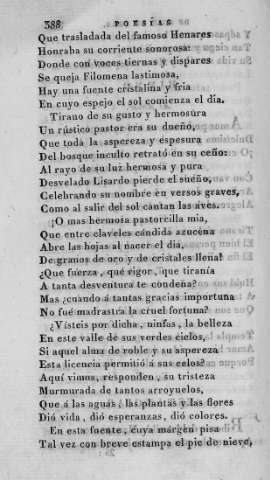 388 POESÍAS
Que trasladada del famoso Henares
Honraba su corriente sonorosa:
Donde con voces tiernas y dispares
Se queja Filomena lastimosa,
Hay una fuente cristalina y fria
En cuyo espejo el sol comienza el dia.
Tirano de su gusto y hermosura
Un rústico pastor era su dueño,
Que toda la aspereza y espesura
Del bosque inculto retrató en su ceño:
Al rayo de su luz hermosa y pura
Desvelado Lisardo pierde el sueño,
Celebrando su nombre en versos graves,
Como al salir del sol cantan las aves.
¡O mas hermosa pastorcilla mia,
Que entre claveles cándida azucena
Abre las hojas al nacer el dia,
De granos de oro y de cristales llena!
¿Que fuerza, qué rigor, que tiranía
A tanta desventura te condena?
Mas ¿cuándo á tantas gracias importuna
No fué madrastra la cruel fortuna?
¿Vísteis por dicha, ninfas, la belleza
En este valle de sus verdes cielos,
Si aquel alma de roble y su aspereza
Esta licencia permitió á sus celos?
Aquí vimos, responden, su tristeza
Murmurada de tantos arroyuelos,
Que á las aguas, las plantas y las flores
Dió vida, dió esperanzas, dió colores.
En esta fuente, cuya márgen pisa
Tal vez con breve estampa el pie de nieve,